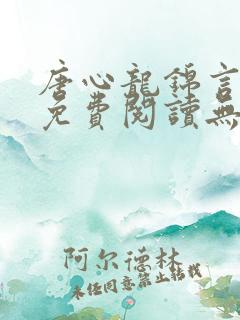 唐心龍錦言
免費閱讀無
阿尔德林
未经同意禁止转载